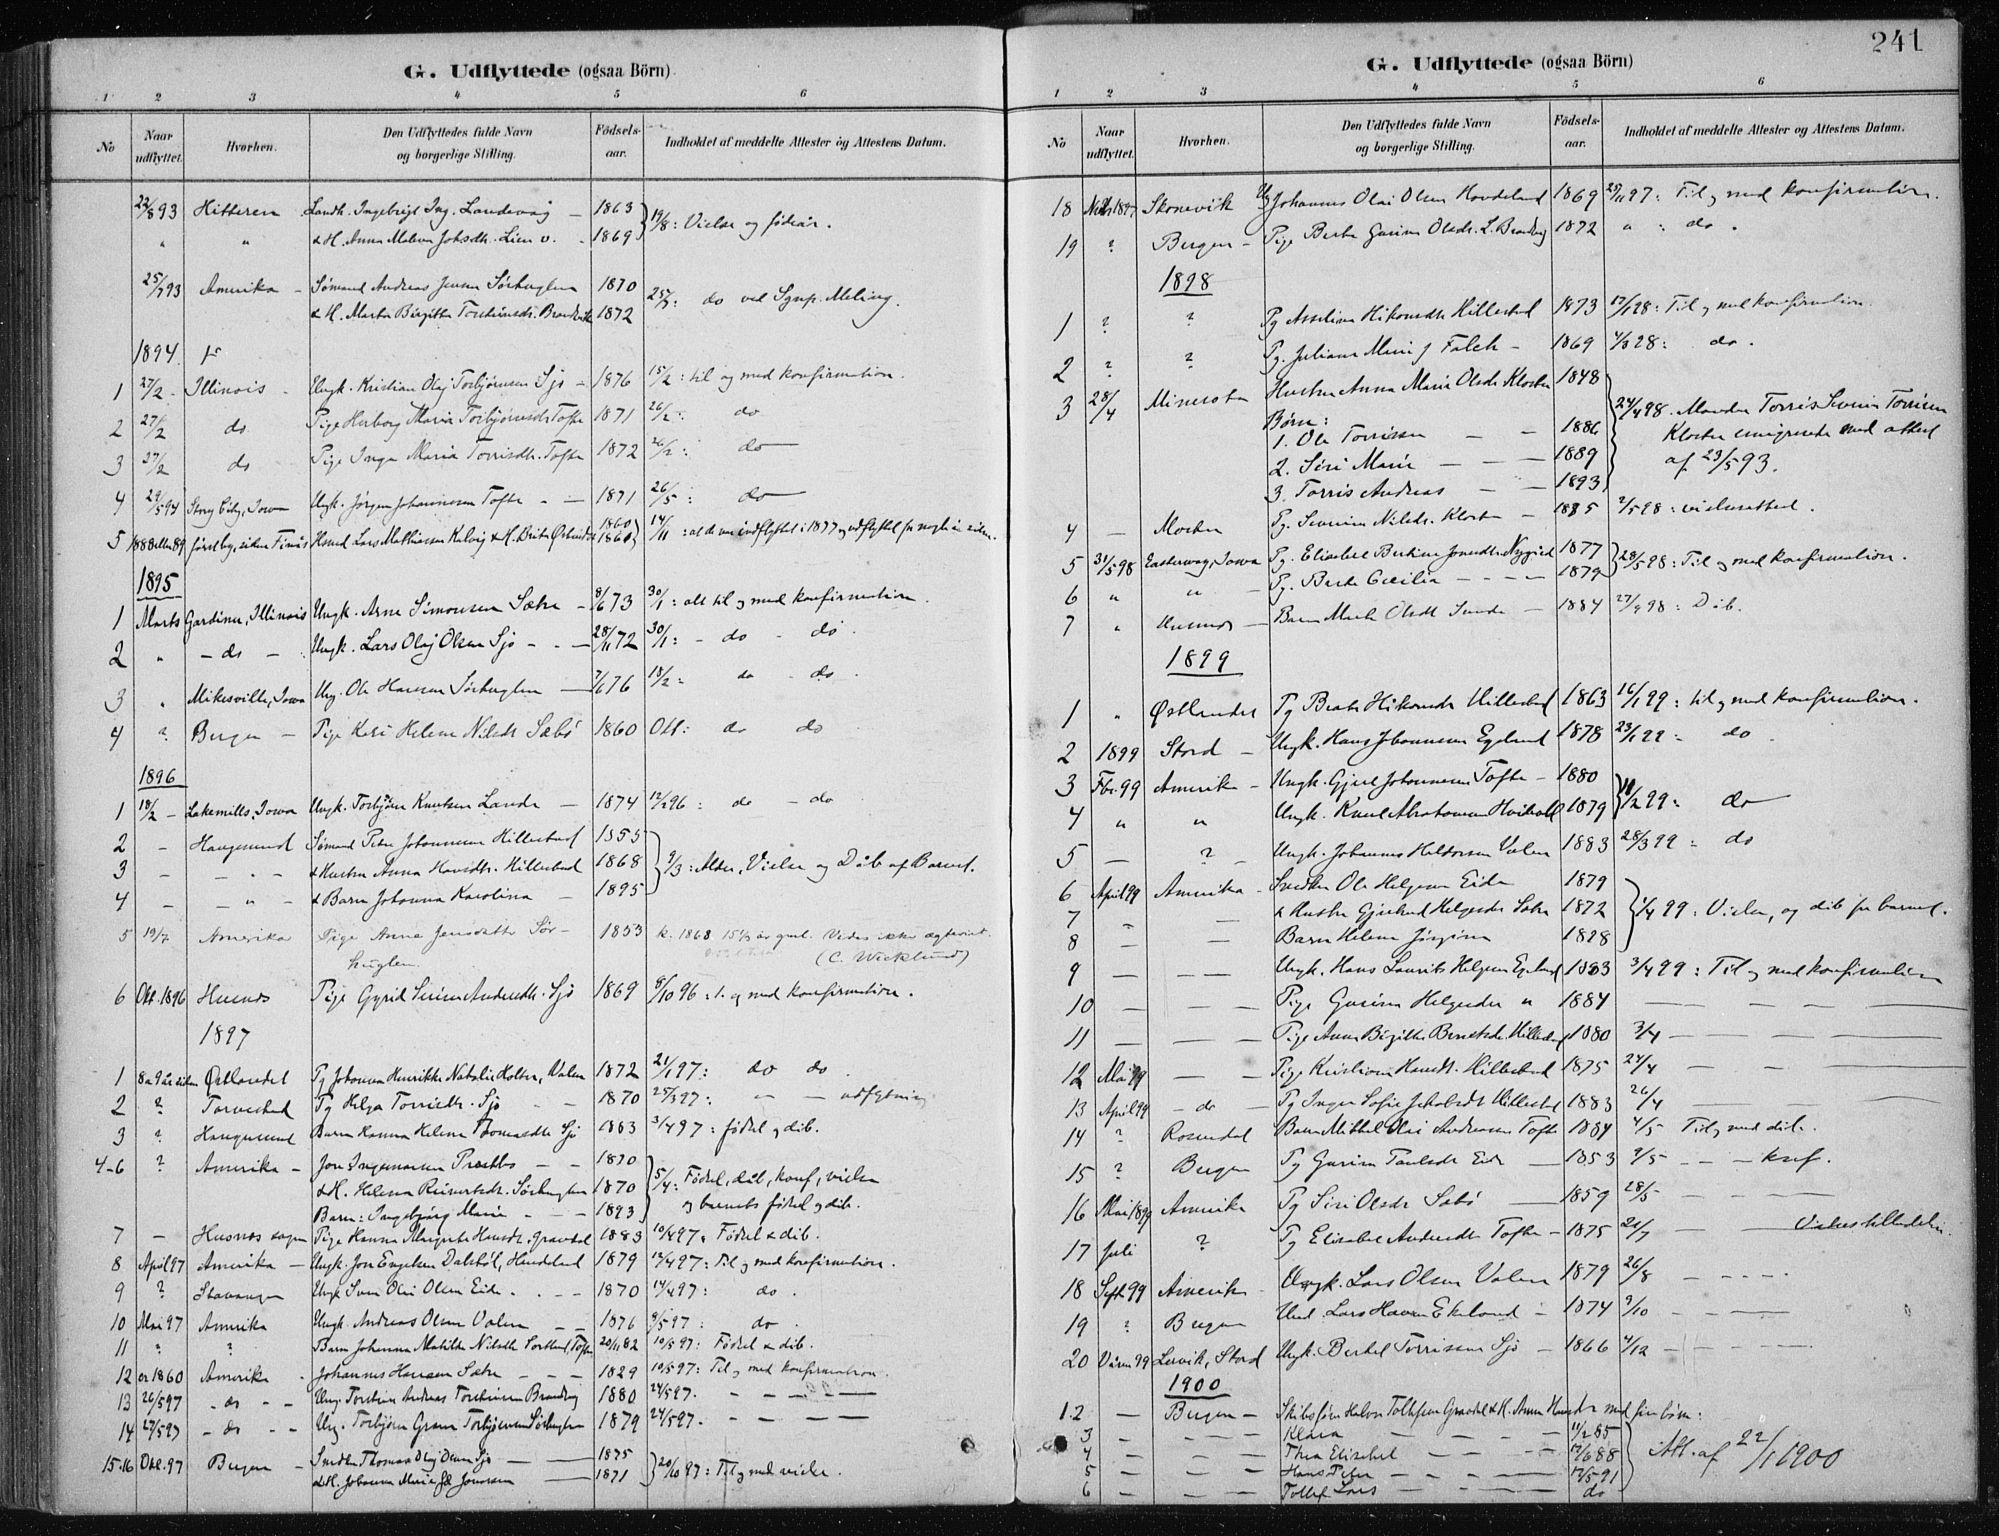 241
G. Udflyttede (ogsaa Börn)
1 2 3 4 5 6
No
Naar udflyttet.
Hvorhen.
Den Udflyttedes fulde Navn og borgerlige Stilling.
Födsels-aar.
Indholdet af meddelte Attester og Attestens Datum.
22/8 93 Hitteren Landh. Ingebrigt Ing. Landevaag 1863 19/8: Vielse og fødeår.
" " & H. Anna Malene 1869
25/7 93 Amerika Sømand Andreas Jensen Sørhuglen 1870 25/7: do ved Sgnp. Meling.
& H. Marta Birgitta Torstensdr. Brandvik 1872
1894
1 27/2 Illinois Ungk. Kristian Olaj Torbjørnsen Sjo 1876 15/2: til og med konfirmation.
2 27/2 do Pige Herborg Maria Torbjørnsdr Tofte 1871 26/2: do
3 27/2 do Pige Inga Maria Torrisdr. Tofte 1872 26/2: do
4 29/5 94 Story City, Iowa Ungk. Jørgen Johannesen Tofte 1871 26/5: do
5 1888 eller 89 Lars Mathiesen & H. Brita 1860 1860 14/11: at de er indflyttet i 1877 og udflyttet for nogle år siden.
1895
1 Marts Gardiner, Illinois Ungk. Arne Simonsen Sætre 8/6 73 30/1: alt til og med konfirmation.
2 " do Ungk. Lars Olaj Olsen Sjo 28/11 72 30/1: do do.
3 " Mikesville, Iowa Ung. Ole Hansen Sørhuglen 7/6 76 18/2: do do.
4 ? Bergen Pige Kari Helene Nilsdr Sæbø 1860 Okt: do do
1896
1 18/2 Lakemills, Iowa Ungk. Torbjørn Knutsen Lande 1874 12/2 96: do do
2 Haugesund Sømand Peder Johannesen Hillestad 1855 9/3: Alder, Vielse og Dåb af Barnet.
3 " & Hustru Anna Hansdtr. Hillestad 1868
4 " & Barn Johanna Karolina 1895
5 19/7 Amerika Pige Anna Jensdatter Sørhuglen 1853 k. 1868 15 1/2 år gml. Vides ikke ægteviet. (C. Wicklund)
6 Okt. 1896 Husnes Pige Gyrid Serina Andersdtr. Sjo 1869 8/10 96: t. og med konfirmation.
1897
1 8 a 9 år siden Østlandet Pg Johanna Henrikke Natalie Holter, Valen 1872 21/1 97: do do.
2 ? Torvestad Pg Helga Torrisdtr. Sjo 1870 25/3 97: udflytning
3 ? Haugesund Barn Hanna Helene Thomasdtr Sjo 1883 3/4 97: fødsel og dåb.
4-6 ? Amerika Jon Ingemarsen Prestbø 1870 5/4: Fødsel, dåb, konf, vielse
& H. Helena Reinertsdr. Sørhuglen 1870 og barnets fødsel og dåb.
Barn: Ingebjørg Marie 1893
7 Husnes sogn Pige Hanna Margrete Hansdr. Gravdal 1883 10/4 97: Fødsel & dåb.
8 April 97 Amerika Ungk. Jon Engelsen Dalsbøl, Handeland 1879 12/4 97: Til og med konfirmation.
9 ? Stavanger Ungk Sven Olai Olsen Eide 1870 14/4 97: do.
10 Mai 97 Amerika Ungk. Andreas Olsen Valen 1876 9/5 97: do.
11 " ? Barn Johanna Matilde Nilsdtr Tofte 20/11 82 10/5 97: Fødsel & dåb.
12 ca 1860 Amerika Johannes Hansen Sætre 1829 10/5 97: Til og med konfirmation.
13 26/5 97 do Ung. Torstein Andreas Torsteinsen Brandvig 1880 24/5 97.
14 27/5 97 do Ung. Torbjørn Gram Torbjørnsen Sørhuglen 1879 24/5 97.
15-16 Okt. 97 Bergen Smedsv. Thomas Olaj Olsen Sjo 1875 20/10 97: Til og med vielse.
& H. Johanna Marie 1871
G. Udflyttede (ogsaa Börn)
1 2 3 4 5 6
No
Naar udflyttet.
Hvorhen.
Den Udflyttedes fulde Navn og borgerlige Stilling.
Födsels-aar.
Indholdet af meddelte Attester og Attestens Datum.
18 1897 Skonevik Ung Johannes Olai Olsen Handeland 1869 27/11 97: Til og med konfirmation.
19 ? Bergen Pige Berta Gurina Olsdr. L. Brandvig 1872 " : do.
1898
1 ? ? Pg Asseline Håkonsdr Hillestad 1873 17/1 98: Til og med konfirmation.
2 ? ? Pg. Juliane Marie J Falch 1869 4/3 98: do.
3 28/4 Minesota Hustru Anna Maria Olsdr Kloster 1848
Børn:
1. Ole Torrisen 1886 24/4 98. Manden Torris Severin Torrisen
2. Siri Marie 1889 Kloster emigrerede med attest
3. Torris Andreas 1893 af 23/5 93.
4 Moster Pg. Severine Nilsdr. Kloster 1875 2/5 98: vielsesattest.
5 31/5 98 Iowa Pg. Elisabet Bertine Jonsdtr Nygård 1877 28/5 98: Til og med konfirmation.
6 " " Pg. Berta Cecilia 1879
7 " Husnes Barn Marta Olsdtr Sunde 1884 27/9 98: Dåb.
1899
1 " Østlandet Pg Berta Håkonsdr Hillestad 1863 16/1 99: til og med konfirmation.
2 1899 Stord Ungk. Hans Johannesen Egeland 1878 23/1 99 do
3 Fbr. 99 Amerika Ungk. Gjert Johannesen Tofte 1880 11/2 99: do
4 " " Ungk. Knud Abrahamsen 1879
5 ? Ungk. Johannes Haldorsen Valen 1883 28/3 99: do
6 April 99 Amerika Snedker Ole Helgesen Eide 1879 1/4 99: Vielse, og dåb for barnet.
7 & Hustru Gjertrud Helgesdr Sætre 1872
8 Barn Helene Jørgine 1898
9 Ungk. Hans Laurits Helgesen Egeland 1883 3/4 99: Til og med konfirmation
10 Pige Gurine Helgesdr " 1884
11 Pige Anna Birgitte Berntsdr. Hillestad 1880 3/4
12 Mai 99 Pige Kristiane Hansdr. Hillestad 1875 24/4
13 April 99 do Pg Inger Sofie Jakobsdtr Hillestad 1883 26/4
14 ? Rosendal Barn Mikkel Olai Andreasen Tofte 1884 4/5 Til og med dåb.
15 ? Bergen Pg Gurine Paulsdr Eide 1853 9/5 konf.
16 Mai 1899 Amerika Pg Siri Olsdr Sæbø 1859 28/5
17 Juli ? Pg Elisabet Andersdtr Tofte 1875 21/7 Vielsestilladelse.
18 Sept 99 Amerika Ungk. Lars Olsen Valen 1879 26/8
19 ? Bergen Und. Lars Hansen Ekeland 1874 3/10
20 Våren 99 Lervik, Stord Ungk. Bertel Torrissen Sjo 1866 4/12
1900
1.2 Bergen Skibsfører Halvor Tollefsen Gravdal & H. Anna Hansdr med fire børn:
3 Klara 11/2 85
4 Thea Elisabet 12/6 88
5 Hans Peter 17/5 91
6 Tollef Lars do
Att. af 22/1 1900